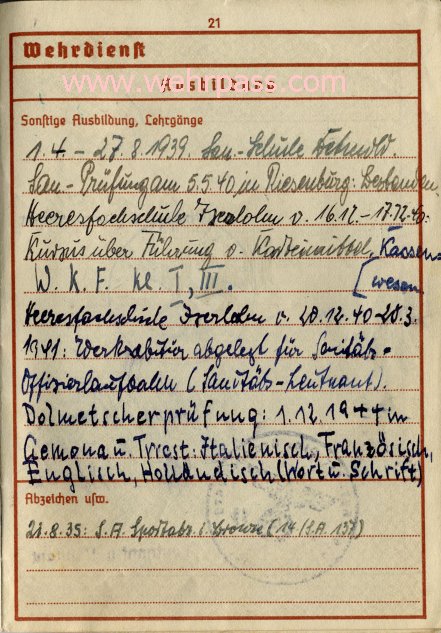 21
Wehrdienst
www.wehrpass.com
Ausbildung
Sonstige Ausbildung, Lehrgänge
1.4 – 27.8.1939. San-Schule Detmold.
San-Prüfung am 5.5.40 in Riesenburg:
Heeresfachschule Iserlohn v. 16.12.–17.12.40:
Kursus über Führung v. Kassen=
W. K. F. Kl. I, III. [wesen
Heeresfachschule Iserlohn v. 20.12.40–20.3.
1941: abgelegt für Sanitäts-
Offizierlaufbahn (Sanitäts-Leutnant).
Dolmetscherprüfung: 1.12.1944 in
Gemona u. Triest: Italienisch, Französisch,
Englisch, Holländisch (Wort u. Schrift)
Abzeichen usw.
.8.35: S.A. Sportabz. i. Bronze (14/S.A 137)